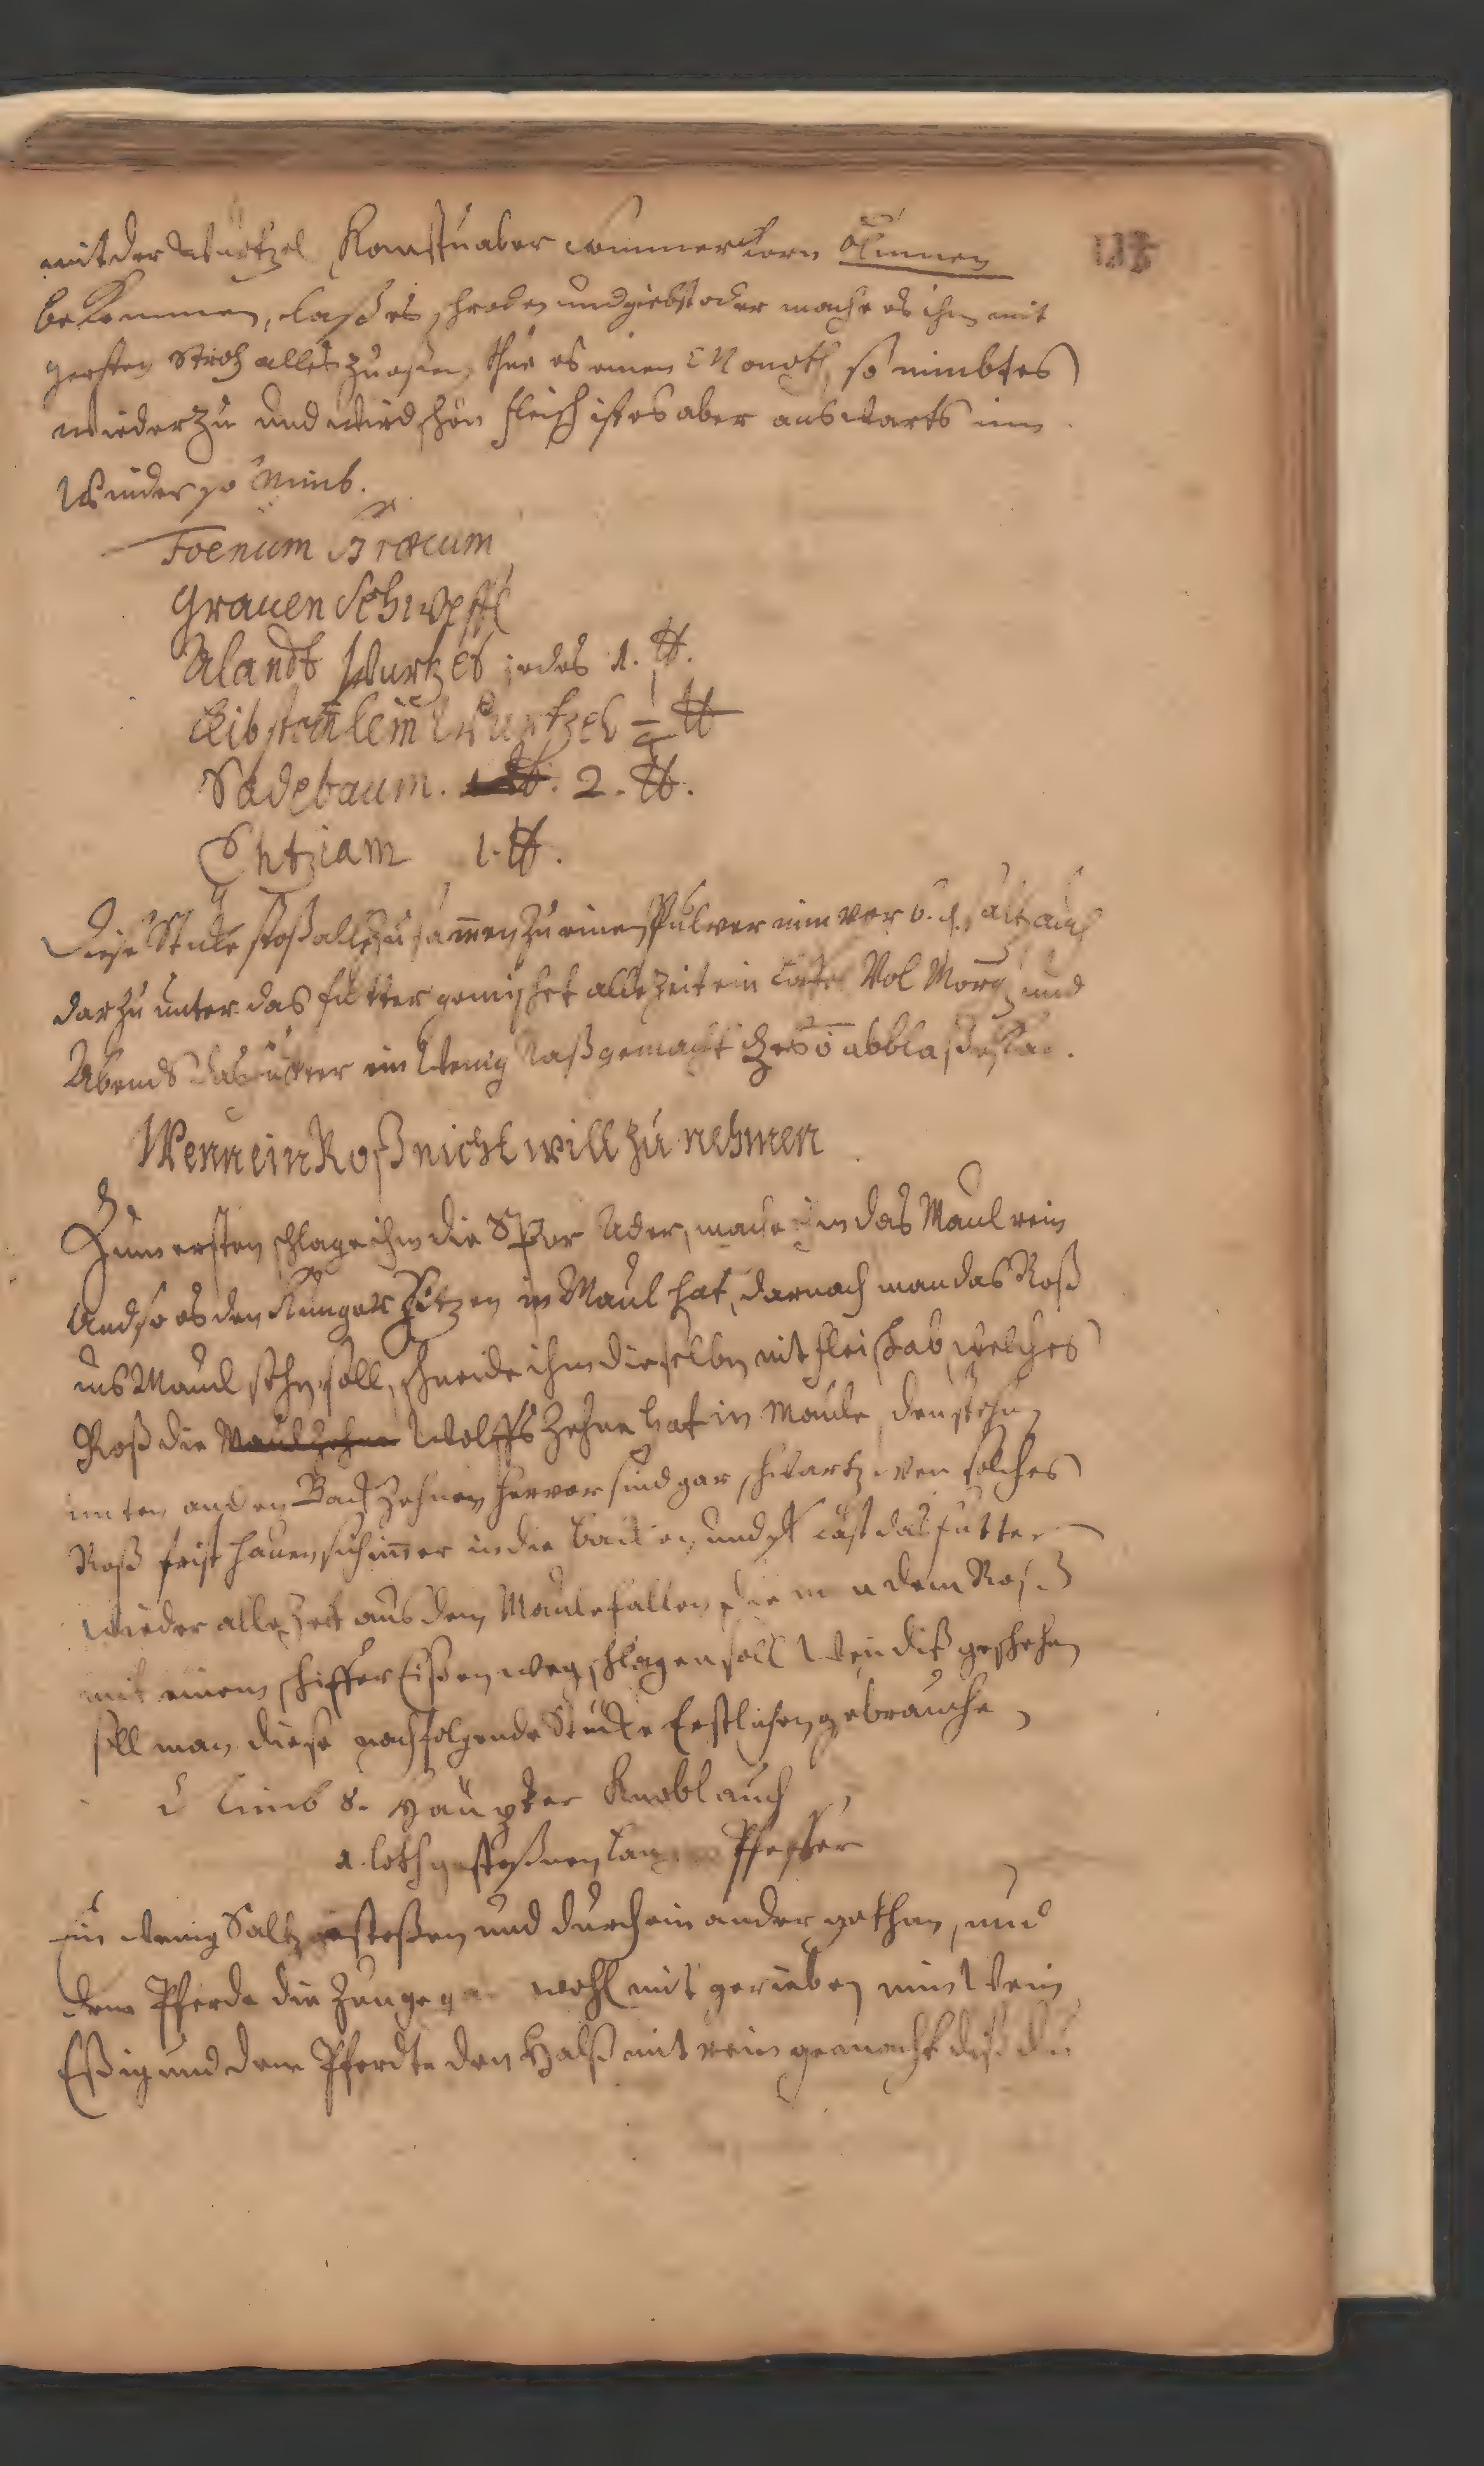 mit der Wurtzel Kanstu aber Sommer Korn
bekommen, laß es schroden und giebst oder mache es ihm mit
gersten Stroh alles zu eßen, thue es einen Monath so nimbt es
wieder zu und wird schön fleisch ist es aber auswarts im
Winder so Nimb.
Foenum Græcum
Grauen Schweffl
Alandt Wurtzel jedes 1. ℔.
Wurtzel ½ ℔
Sadebaum. 2. ℔.
Entziam 1. ℔.
Diese Stuke stoß alle zusammen zu einen Pulver nim vor 6. d. saltz auch
darzu unter das futter gemischet alle Zeit ein Vol Morg und
Abends das futter ein Wenig Naß gemacht
Wenn ein Roß nicht will zu nehmen
Zum ersten schlage ihm die Spor Ader, mache ihm das Maul rein
Und so es den Hunger Zitzen im Maul hat, darnach man das Roß
ins Maul sehn soll, schneide ihm dieselbn mit fleiß ab welches
Roß die Wolffs Zehne hat in Maule, den stehn
unten an den Back Zehnen hervor sind gar schwartz wen solches
Roß frist hauen sich immer in die und last das futter
wieder alle Zeit aus dem Maule fallen die man dem Roß
mit einem schiffer Eißen weg schlagen soll Wen diß geschehen
soll man diese nachfolgende Stucke Erstlichen gebrauche
Nimb 8. Häupter Knoblauch
1. loth gestoßnen Langen Pfeffer
ein wenig Saltz gestoßen und durch ein ander gethan, und
dem Pferde die Zunge gar wohl mit gerieben nim Wein
Eßig und dem Pferdte den Halß mit rein gemacht diß